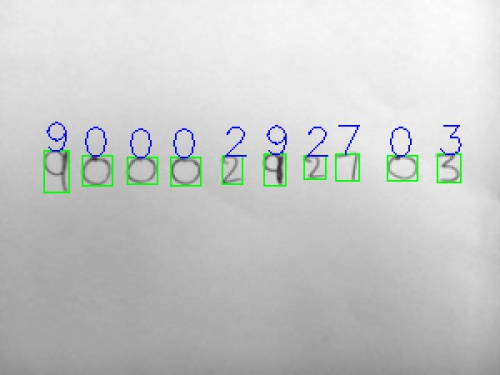 9 0 0 0 2 9 2 7 0 3
9 0 0 0 2 9 2 7 0 3